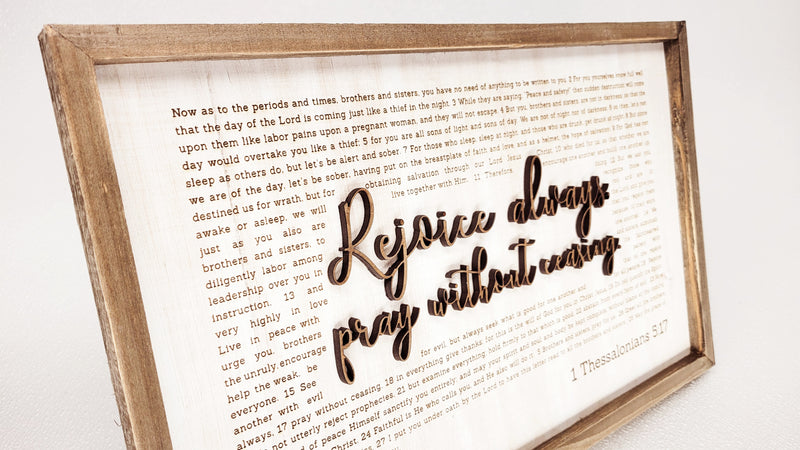 Now as to the periods and times, brothers and sisters, you have no need of anything to be written to you. 2 For you yourselves know full well
that the day of the Lord is coming just like a thief in the night. 3 While they are saying, "Peace and safety!" then sudden destruction will come
upon them like labor pains upon a pregnant woman, and they will not escape. 4 But you, brothers and sisters, are not in darkness, so that the
day would overtake you like a thief; 5 for you are all sons of light and sons of day. We are not of night nor of darkness; 6 so then, let's not
sleep as others do, but let's be alert and sober. 7 For those who sleep, sleep at night, and those who are drunk, get drunk at night. 8 But since
we are of the day, let's be sober, having put on the breastplate of faith and love, and as a helmet, the hope of salvation. 9 For God has not
destined us for wrath, but for obtaining salvation through our Lord Jesus Christ, 10 who died for us, so that whether we are
awake or asleep, we will live together with Him. 11 Therefore, encourage one another
just as you also are
brothers and sisters, to
diligently labor among
leadership over you in
instruction, 13 and
very highly in love
Live in peace with
urge you, brothers
the unruly, encourage
help the weak, be
everyone. 15 See
another with evil for evil, but always seek what is good for one another and
always, 17 pray without ceasing, 18 in everything give thanks; for this is the will of God for you in Christ Jesus. 19 Do not
not utterly reject prophecies, 21 but examine everything; hold firmly to that which is good, 22 abstain from every form of evil. 23
of peace Himself sanctify you entirely; and may your spirit and soul and body be kept complete, without blame at the
Christ. 24 Faithful is He who calls you, and He also will do it. 25 Brothers and sisters, pray for us. 26 Greet all the brothers
27 I put you under oath by the Lord to have this letter read to all the brothers and sisters. 28
Rejoice always;
pray without ceasing.
1 Thessalonians 5:17